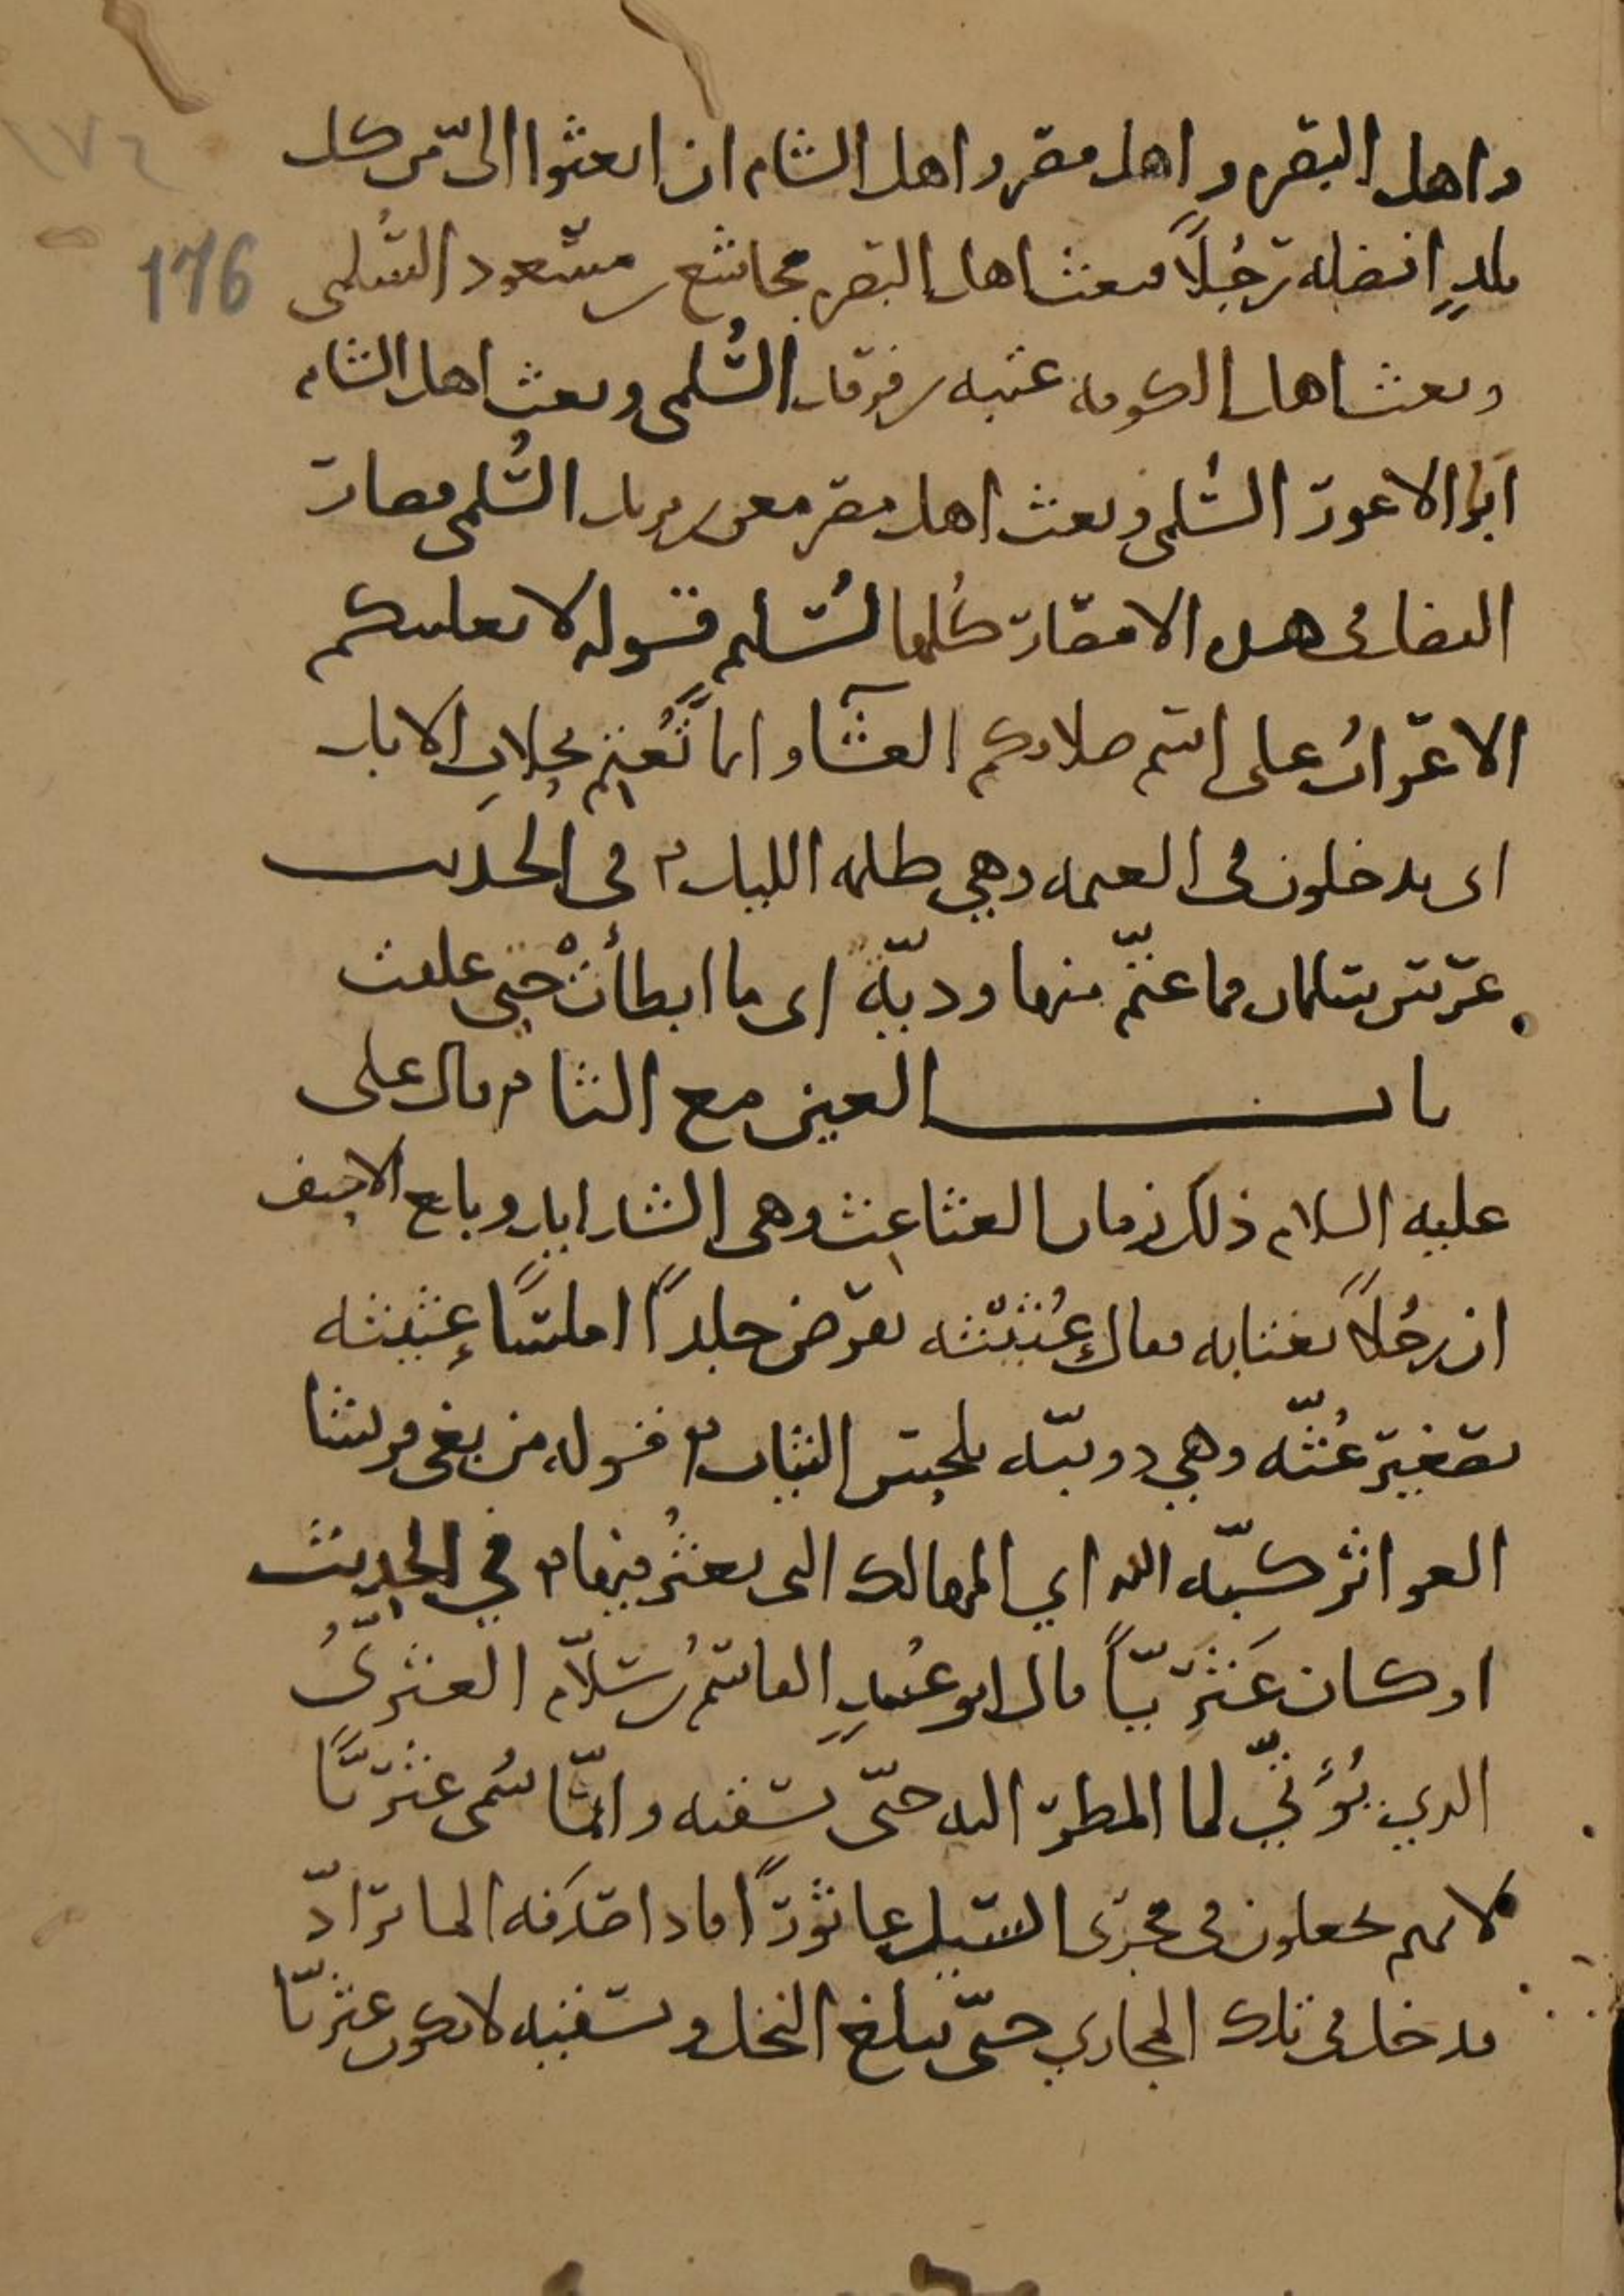 ١٧٦
176
واهل البصره واهل مصر واهل الشام ان ابعثوا الىّ من كل
بلدٍ افضله رجُلاً فبعث اهل البصره مجاشع بن مسعود السلمى
وبعث اهل الكوفه عتبه بن فرقد السُّلمى وبعث اهل الشام
ابَا الاعور السُّلمى وبعث اهل مصر معن بن يزيد السُّلمى فصارت
الفضائل فى هذه الامصار كُلها لسُلَيم قوله لا يغلبنكم
الاعرابُ على اسم صلاتكم العشآ وانما تُعْتِم بحِلابِ الابل
اى يدخلون فى العتمه وهى ظلمه الليل ٥ فى الحديث
غرست سلمان فما عتّم منها وديّة اى ما ابطأتْ حتى علقت
باب العين مع الثا ٥ قال على
عليه السلام ذلك زمان العثاعث وهى الشدايد وبلغ الاحنف
ان رجُلاً يغتابه فقال عُثَيْثَه تقرض جلدًا املسًا عثيثه
تصغير عُثّه وهى دويبّه تلحس الثياب ٥ قوله من بغى قريشا
العواثر كبّه الله اي المهالك التى يعثُر فيها ٥ في الحديث
او كان عَثَرِيّاً قال ابو عُبيدٍ القاسمُ بن سلّام العثرىُّ
الدي يُؤَتّى لما المطر اليه حتّى يسقيه وانّما سُمى عثريًّا
لانهم يجعلون فى مجرى السيل عاثورًا فاذا صَدَمَه الما ترادّ
فدخل فى تلك المجاري حتّى يبلغ النخل ويسقيه لا يكون عثريًّا